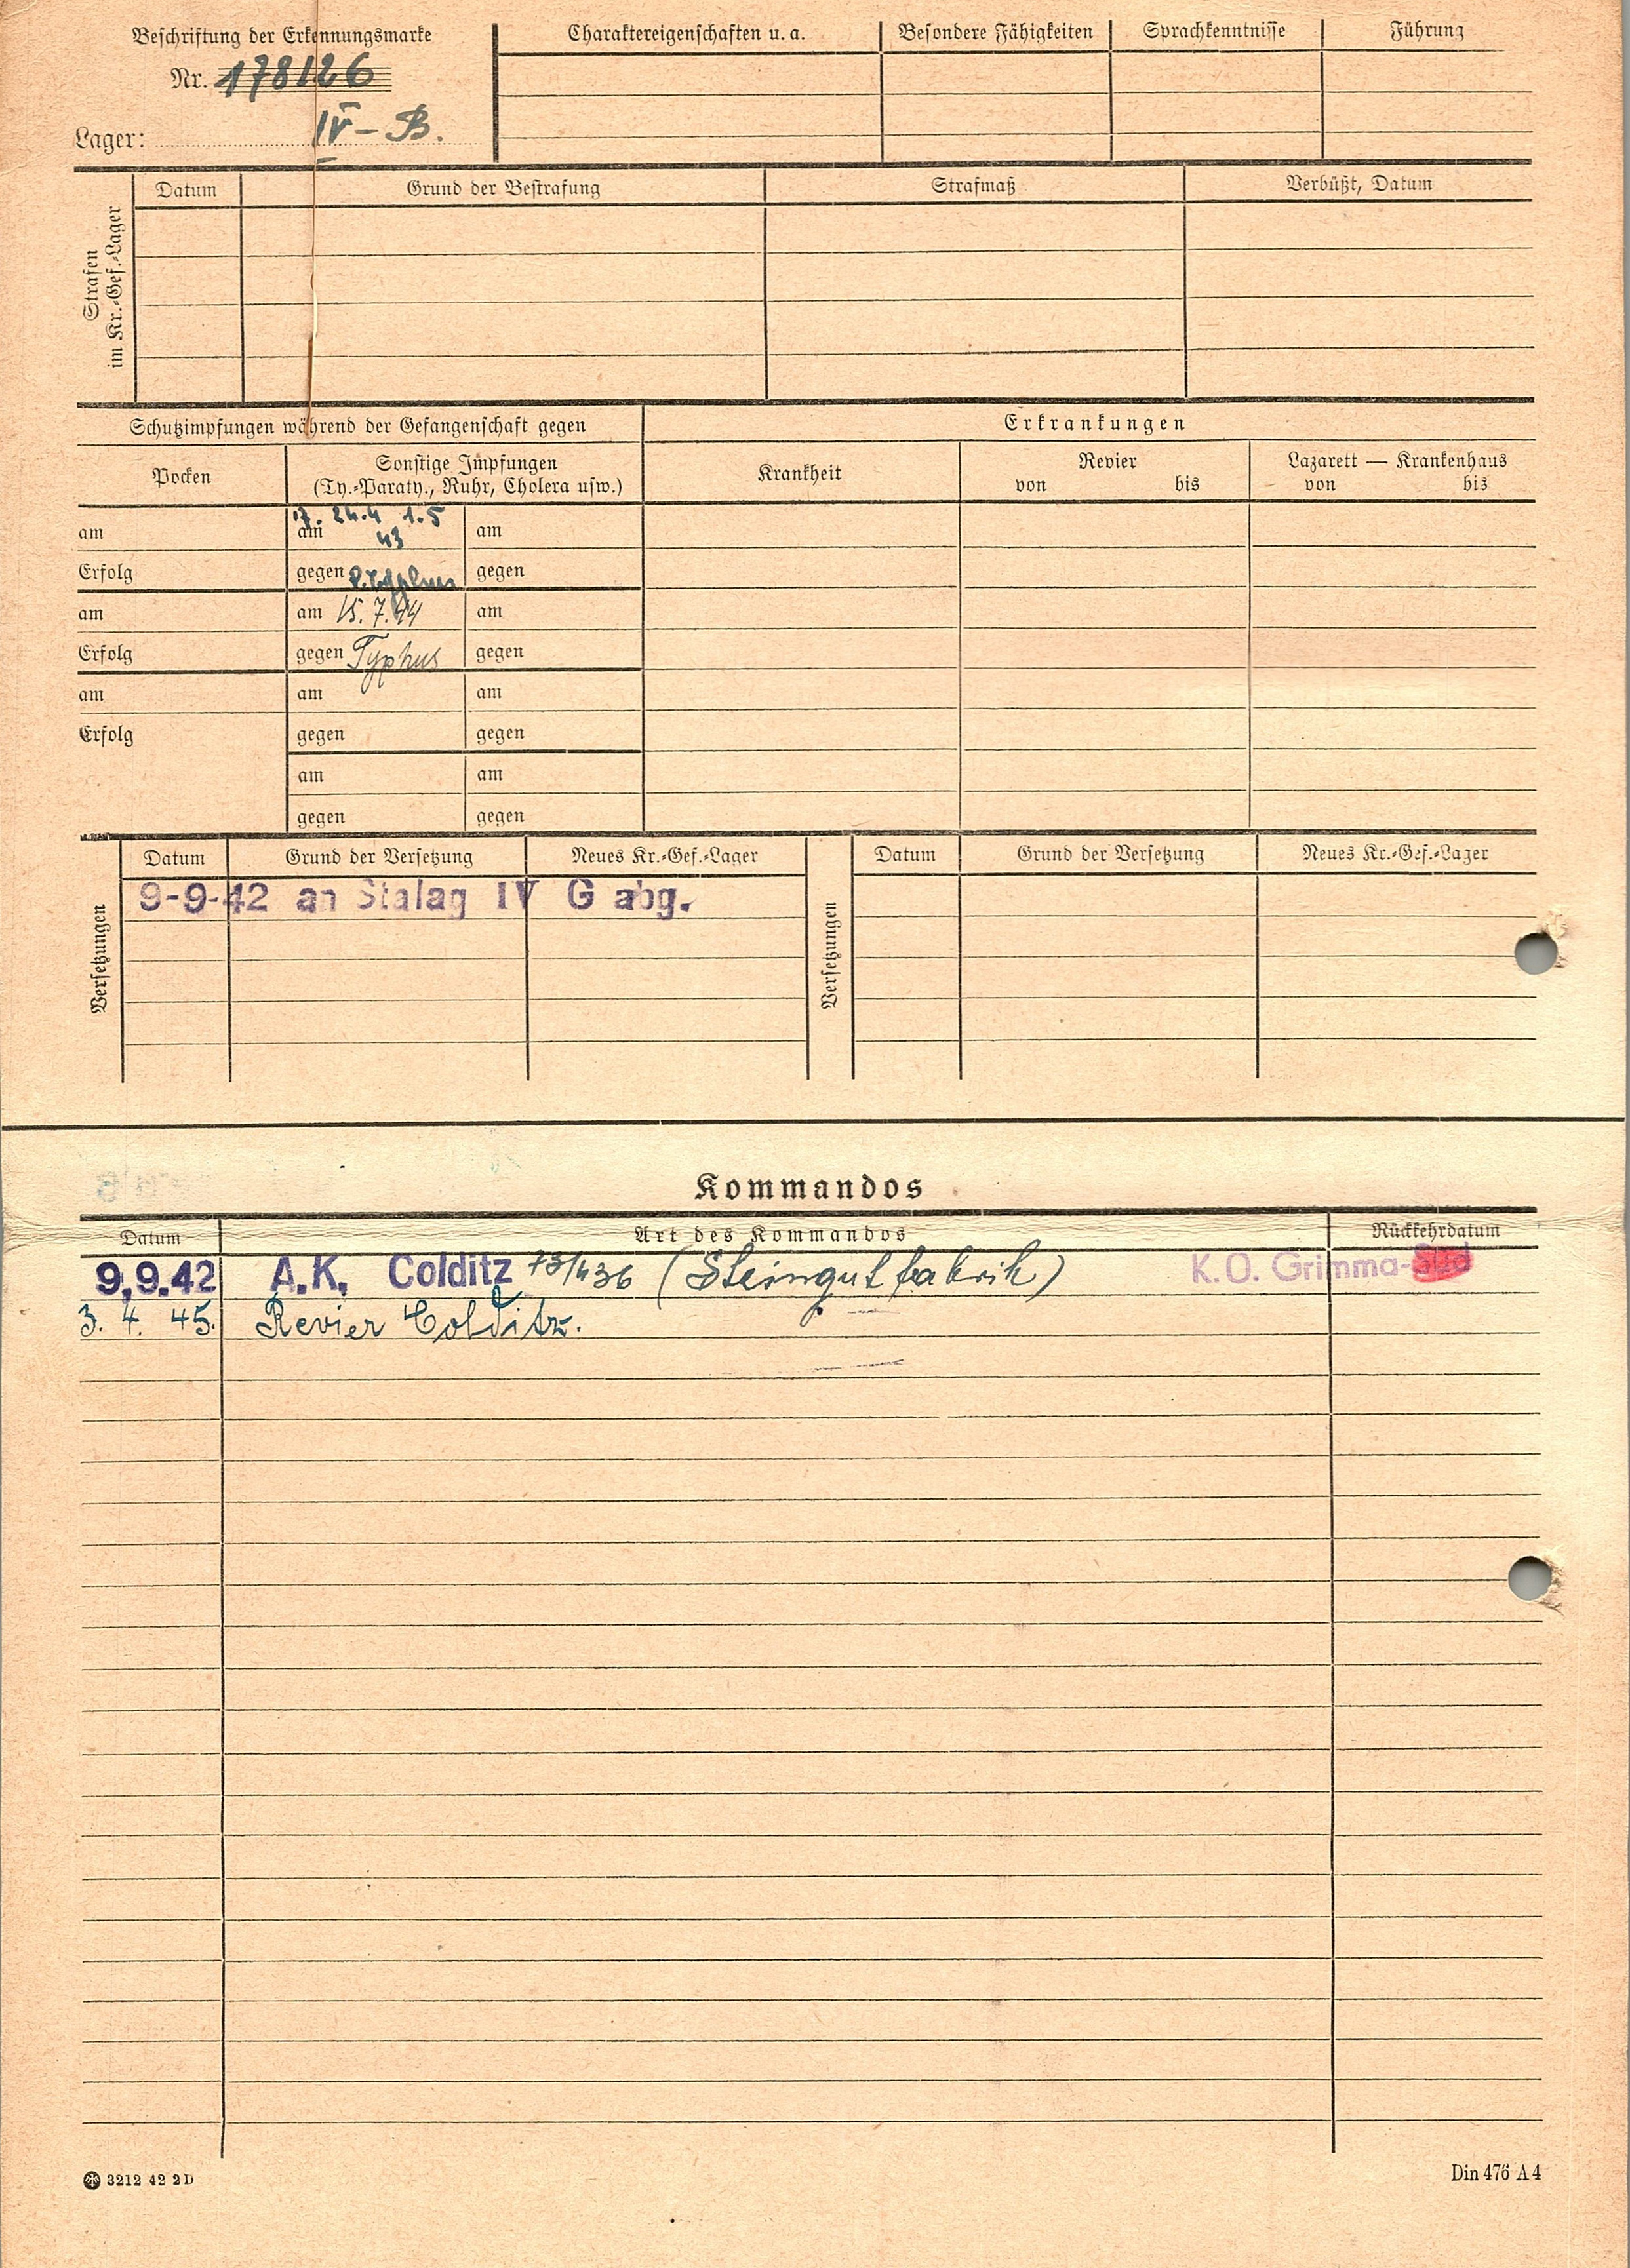 Beschriftung der Erkennungsmarke
Nr. 178126
Lager: IV-B.
Charaktereigenschaften u. a.
Besondere Fähigkeiten
Sprachkenntnisse
Führung
Strafen
im Kr.-Gef.-Lager
Datum
Grund der Bestrafung
Strafmaß
Verbüßt, Datum
Schutzimpfungen während der Gefangenschaft gegen
Erkrankungen
Pocken
Sonstige Impfungen
(Ty.-Paraty., Ruhr, Cholera usw.)
Krankheit
Revier
von bis
Lazarett — Krankenhaus
von bis
am am 17. 24.4 1.5 am
43
Erfolg gegen P.Typhus gegen
am am 15.7.44 am
Erfolg gegen Typhus gegen
am am am
Erfolg gegen gegen
am am
gegen gegen
Versetzungen
Datum Grund der Versetzung Neues Kr.-Gef.-Lager
9-9-42 an Stalag IV G abg.
Versetzungen
Datum Grund der Versetzung Neues Kr.-Gef.-Lager
Kommandos
Datum Art des Kommandos Rückkehrdatum
9.9.42 A.K. Colditz 73/436 (Steingutfabrik) K.O. Grimma-Süd
3. 4. 45. Revier Colditz.
3212 42 2D
Din 476 A4